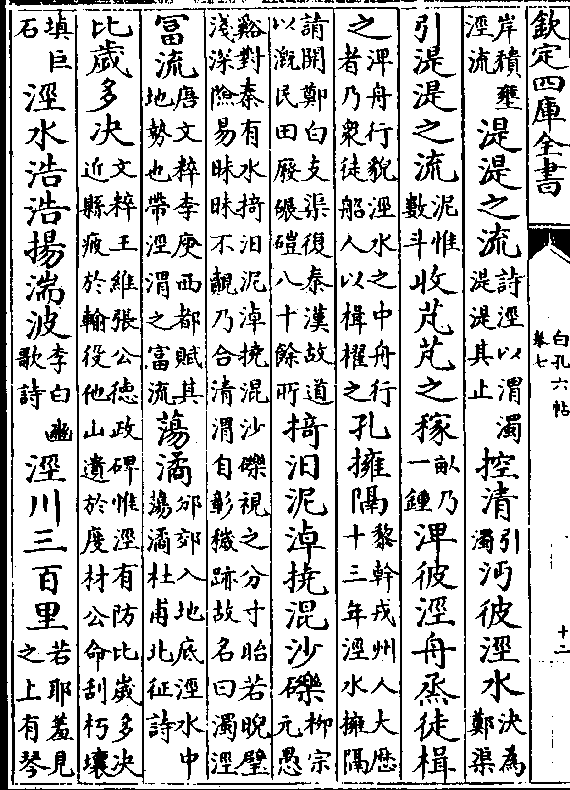 欽定四庫全書
岸積壅
涇流
湜湜之流
詩涇以渭濁
湜湜其止
控清
引
濁
沔彼涇水
決為
鄭渠
引湜湜之流
泥惟
數斗
收芃芃之稼
畝乃
一鍾
淠彼涇舟烝徒楫
之
淠舟行貌涇水之中舟行
之者乃衆徒船人以楫櫂之
孔擁隔
黎幹戎州人大厯
十三年涇水擁隔
請開鄭白支渠復秦漢故道
以溉民田廢碾磑八十餘所
掎汨泥淖撓混沙礫
柳宗
元愚
谿對秦有水掎汨泥淖撓混沙礫視之分寸眙若睨壁
淺深險易昧昧不覿乃合清渭自彰穢跡故名曰濁涇
富流
唐文粹李庾西都賦其
地勢也帶涇渭之富流
蕩潏
邠郊入地底涇水中
蕩潏杜甫北征詩
比歲多决
文粹王維張公德政碑惟涇有防比歲多决
近縣疲於輸役他山遺於度材公命刮朽壤
填巨
石
涇水浩浩揚湍波
李白豳
歌詩
涇川三百里
若耶羞見
之上有琴
白孔六帖
卷七
十二